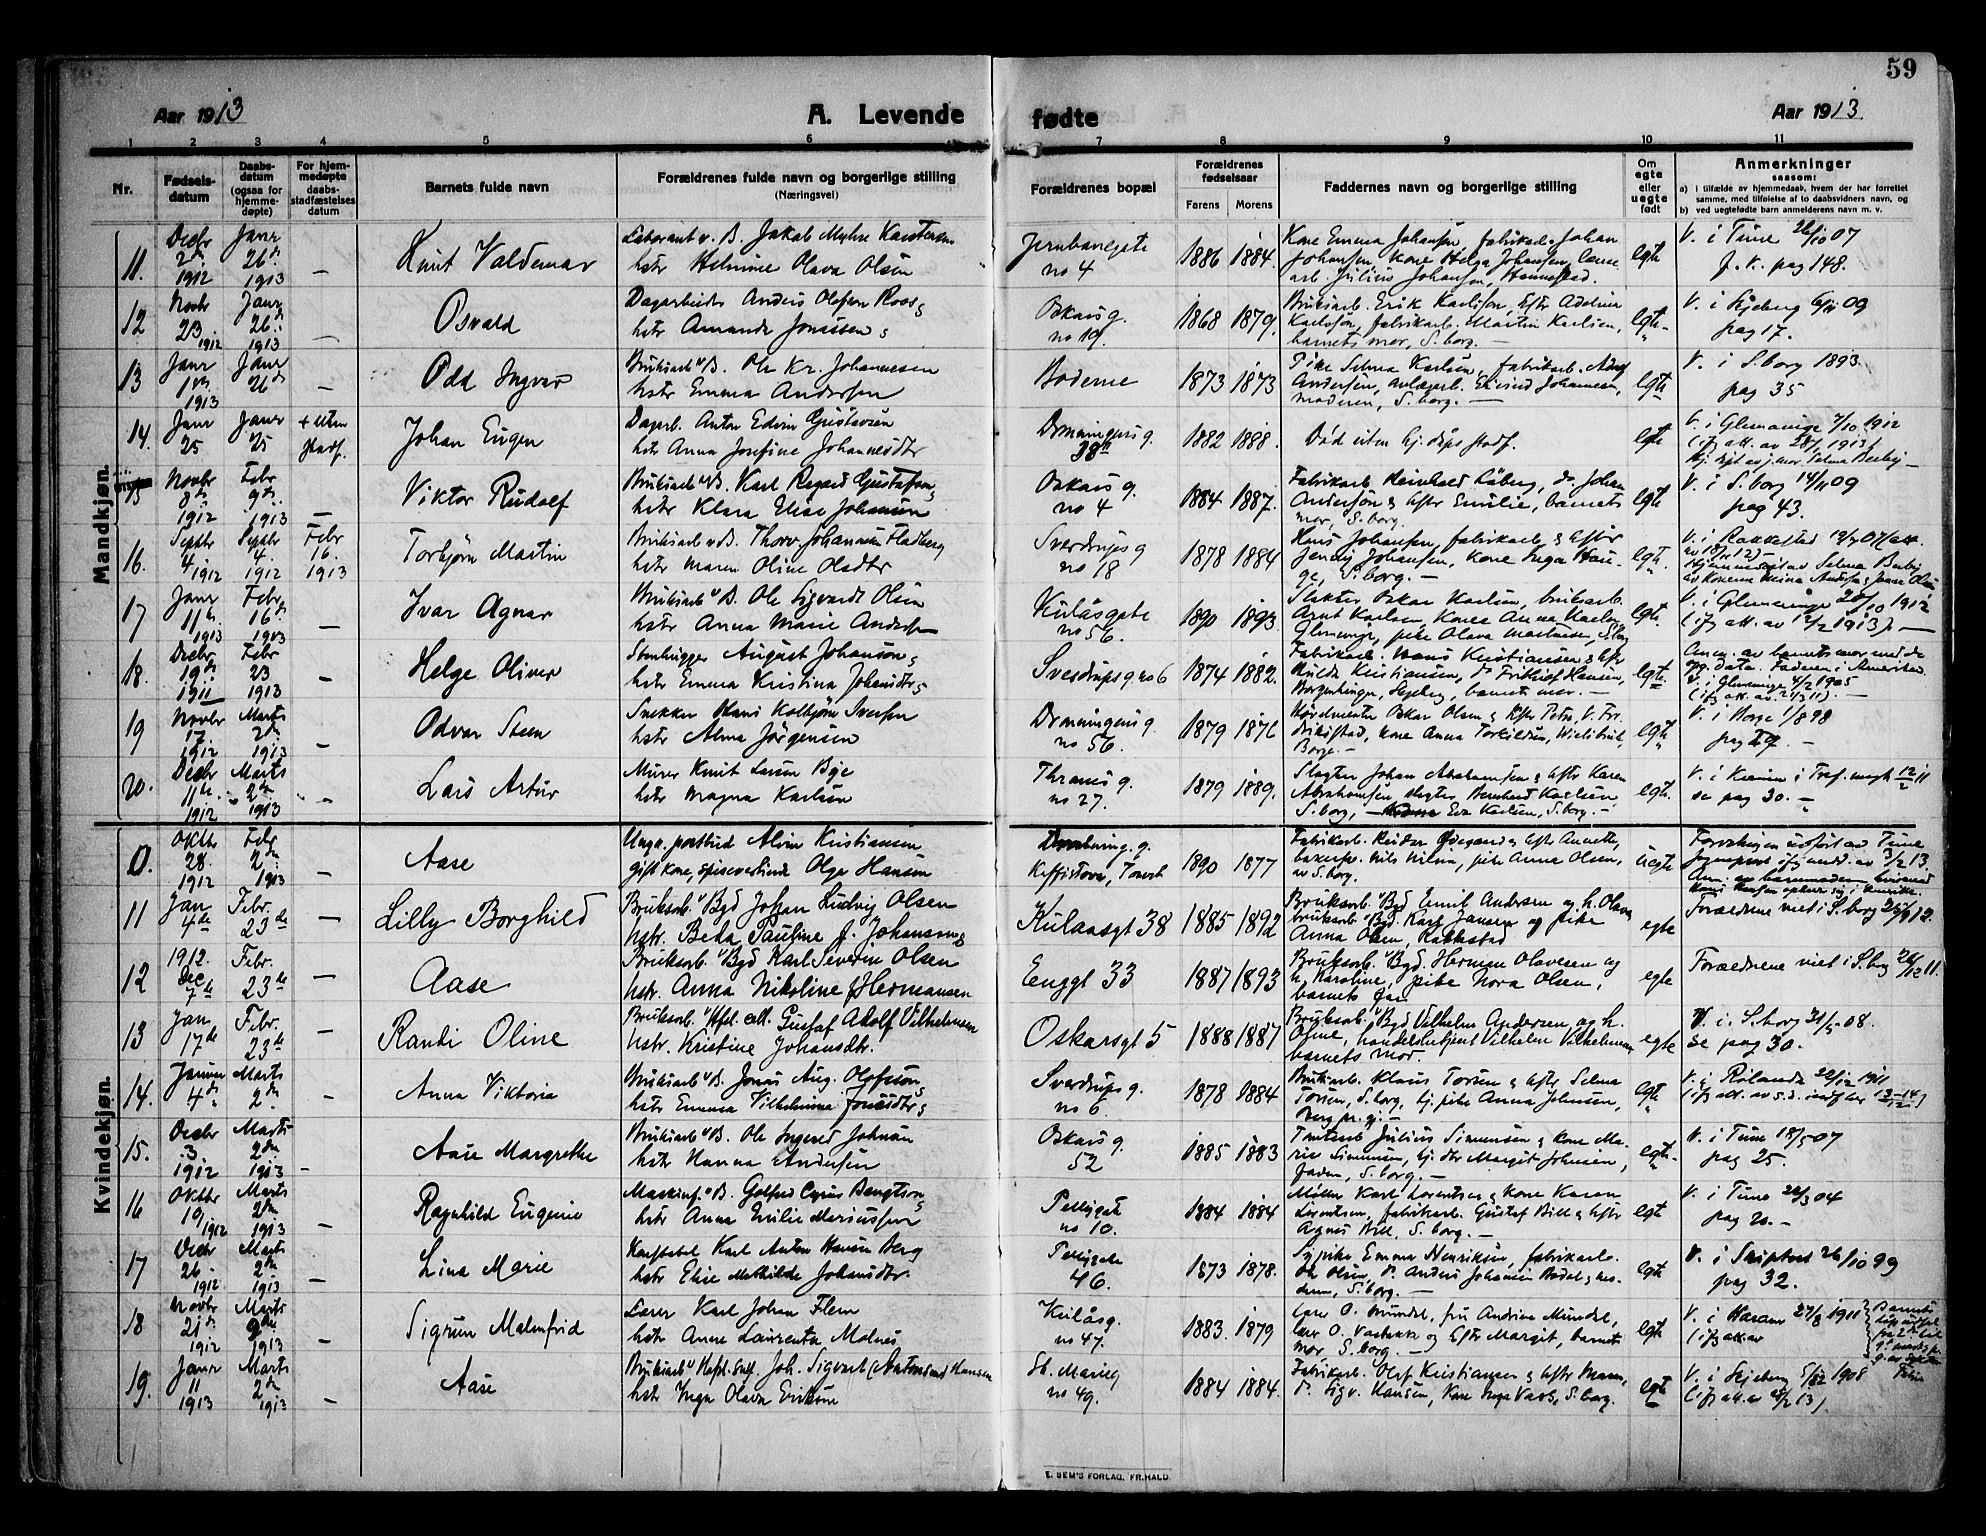 59
Aar 1913
A. Levende
fødte
Aar 1913
1 2 3 4 5 6 7 8 9 10 11
Nr.
Fødsels-
datum
Daabs-
datum
(ogsaa for
hjemme-
døpte)
For hjem-
medøpte
daabs-
stadfæstelses
datum
Barnets fulde navn
Forældrenes fulde navn og borgerlige stilling
(Næringsvei)
Forældrenes bopæl
Forældrenes
fødselsaar
Farens Morens
Faddernes navn og borgerlige stilling
Om
egte
eller
uegte
født
Anmerkninger
saasom:
a) i tilfælde av hjemmedaab, hvem der har forrettet
samme, med tilføielse af to daabsvidners navn, og
b) ved uegtefødte barn anmelderens navn m. v.
Mandkjøn.
11. Decbr 2den 1912 Janr 26de 1913 —
Knut Valdemar
Laborant v. B. Jakob Myhre Karstensen
hstr Helmine Olava Olsen
Jernbanegate
no 4
1886 1884.
Kone Emma Johansen, fabrikarb. Johan
Johansen, Kone Helga Johansen,
arb. Julius Johansen, Hannestad.
egte
V. i Tune 26/10 07
f. k. pag 148.
12 Novbr 23. 1912 Janr 26de 1913 —
Osvald
Dagarbeider Anders Olofson Roos
hstr Amanda Jonassen
Oskars g.
no 19.
1868 1879.
Bruksarb. Erik Karlson, Efter Adolina
Karlsson, fabrikarb. Martin Karlsen,
barnets mor, S.borg. —
egte
V. i Skjeberg 6/11 09
pag 17.
13 Janr 1ste 1913 Janr 26de —
Odd Ingvar
Bruksarb v B. Ole Kr. Johannesen
hstr Emma Andersen
Boderne
1873 1873
Pike Selma Karlsen, fabrikarb.
Andersen, avlægarb. Eivind Johannesen,
moderen, S.borg. —
egte
V. i S.borg 1893
pag 35
14. Janr 25 Janr 25 + uten stadf.
Johan Eugen
Dagarb. Anton Edvin Gustavsen
hstr Anna Josefine Johannesdtr
Dronningens g.
38
1882 1888.
Død uten hj. dåps stadf.
egte
V. i Glemminge 7/10 1912
(ifg att. av 28/1 1913)
hj. døpt av j.mor Selma Berby —
15 Novbr 8de 1912 Febr 9de 1913 —
Viktor Rudolf
Bruksarb v B. Karl Ragard Gustafson
hstr Klara Elise Johansen
Oskars g.
no 4
1884 1887.
Fabrikarb. Reinhold Løberg, do Johan
Anderson & Efter Emilie, barnets
mor, S.borg.
egte
V. i S.borg 14/11 09
pag 43.
16. Septbr 4 1912 Septbr 4. 1912 Febr 16. 1913
Torbjørn Martin
Bruksarb v B. Thorv. Johannesen Fladberg
hstr Maren Oline Olsdtr
Sverdrups g
no 18
1878 1884
Hans Johansen, fabrikarb & Efter
Jenny Johansen, Kone Inga Hau-
ge, S.borg. —
egte.
V. i Rakkestad
av 18/11 12) —
Hjemmedøpt av Selma Berby
17 Janr 11te 1913 Febr 16de 1913 —
Ivar Agnar
Bruksarb v B. Ole Sigvardt Olsen
hstr Anna Marie Andersen
Kulåsgate
no 56.
1890 1893.
Slakter Oskar Karlsen, bruksarb.
Arnt Karlsen, Kone Anna Karlsen
Glemminge, pike Olava Mathisen, S.borg
egte.
V. i Glemminge 28/10 1912
(ifg att. av 12/2 1913). —
18. Decbr. 19de 1911 Febr 23 1913 —
Helge Oliver
Stenhugger August Johanson
hstr Emma Kristina Johansdtr
Sverdrups g no 6
1874 1882.
Fabrikarb. Hans Kristiansen & Efter
Hulda Kristiansen, do Fridtjof Hansen,
Borgenhaugen, Skjeberg, barnets mor. —
egte.
Anm. av barnets mor med de
opg. data. Faderen i Amerika
V. i Glemminge 4/2 1905
(ifg att. av 21/3 11).
19 Novbr 17. 1912 Marts 2den 1913 —
Odvar Steen
Snekker Hans Kolbjørn Iversen
hstr Alma Jørgensen
Dronningens g.
no 56.
1879 1876
Oskar Olsen & Efter Petra, V. Fr.
drikstad, kone Anna Torkildsen,
Borge. —
egte
V. i Borge 1/8 98
pag 29. —
20. Decbr 11te 1912 Marts 2den 1913 „
Lars Artur
Murer Knut Larsen Bye
hstr Magna Karlsen
Thranes g.
no 27.
1879 1889.
Slagter Johan Abrahamsen & Efter Karen
Abrahamsen slagter Bernhard Karlsen,
S.borg, Eva Karlsen, S.borg. —
egte.
V. i Kra i Tref. mgh 12/2 11
se pag 30. —
Kvindekjøn.
0. Oktbr 28. 1912 Febr 2den 1913 —
Aase
Ungk. postbud Alvin Kristiansen
gift kone, spisevertinde Olga Hansen
Dronning. g.
Kaffistova, Torvet
1890 1877
Fabrikarb. Reidar Ødegaard & Efter Annette,
Nils Nilsen, pike Anna Olsen,
av S.borg.
uegte
11 Jan 4de Febr. 23de —
Lilly Borghild
Bruksarb. v/Bgd Johan Ludvig Olsen
Hstr. Beda Pauline f. Johansen
Kulaasgt 38
1885 1892
Bruksarb. v/Bgd Emil Andersen og h. Olava
bruksarb. v/Bgd. Karl Jansen og pike
Anna Olsen, Rakkestad
egte
Forældrene viet i S.borg 25/9 12.
12 1912. Dec 7de Febr. 23de —
Aase
Bruksarb. v/Bgd Karl Severin Olsen
Hstr. Anna Nikoline f Hermansen
Enggt 33
1887 1893
Bruksarb. v/Bgd. Herman Olavesen og
h. Karoline, pike Nora Olsen,
barnets far
egte
Forældrene viet i S.borg 26/12 11.
13 Jan 17de Febr. 23de —
Randi Oline
Bruksarb. v/Hfsl. Gustaf Adolf Vilhelmsen
Hstr. Kristine Johansdtr.
Oskarsgt 5
1888 1887
Bruksarb. v/Bgd Vilhelm Andersen og h.
Oline, handelsbetjent Vilhelm Vilhelmsen
barnets mor.
egte
V. i. S.borg 31/5 08.
se pag 30.
14. Januar 4de Marts 2den —
Anna Viktoria
Bruksarb v B. Jonas Aug. Olofsson
hstr Emma Vilhelmina Jonasdtr
Sverdrups g.
no 6.
1878 1884
Bruksarb. Klaus Torsen & Efter Selma
Torsen, S.borg, hj. pike Anna Johnsen,
Berg pr. gj.
egte
V. i Rolands 22/12 1911
15. Decbr 3. 1912 Marts 2den 1913 —
Aase Margrethe
Bruksarb v B. Ole Ingvald Johnsen
hstr Hanna Andersen
Oskars g.
52
1885 1883
Julius Simensen & Kone Ma-
rie Simensen, hj. dtr Margit Johnsen,
faderen, S.borg. —
egte.
V. i Tune 18/5 07
pag 25.
16 Oktbr 10/1912 Marts 2den 1913 —
Ragnhild Eugenie
Maskinf. v B. Golfred Cyrus Bengtson
hstr Anna Emilie Mariussen
Pellygate
no 10.
1884 1884
Møller Karl Lorentsen & Kone Karen
Lorentsen, fabrikarb. Gustaf Bill & Efter
Agnes Bill, S.borg. —
egte
V. i Tune 26/3 04
pag 20. —
17 Decbr 26. 1912 Marts 2den 1913 —
Lina Marie
Karl Anton Hansen Berg
hstr Elise Mathilde Johansdtr.
Pellygate
46.
1873 1878.
Sypike Emma Henriksen, fabrikarb.
Ole Olsen, do. Anders Johansen Bodal & mo-
deren, S.borg. —
egte
V. i Skiptvet 26/10 99
pag 32.
18 Novbr 21de 1912 Marts 2den 1913 —
Sigrun Malmfrid
Lærer Karl Johan Flem
hstr Anne Laurentse Molnes
Kulåsg.
no 47.
1883. 1879
Lærer O. Mundal, fru Andrine Mundal,
lærer O. Vasbakk og Efter Margit, barnets
mor, S.borg. —
egte
V. i Haram 27/8 1911
(ifg att. av
19. Janr 11 1913 Marts 2den 1913 —
Aase
Bruksarb v/ Hafsl. Joh. Sigvart (Antonsen) Hansen
hstr Inga Olava Eriksen
St. Marieg
no 49.
1884 1884.
Fabrikarb. Olaf Kristiansen & Efter Maren,
do. Sigv. Hansen, Kone Inga Vaab, S.borg.
egte
V. i Skjeberg 5/12 1908
(ifg att. av 4/2 13)
E. SEM'S FORLAG, FR.HALD.